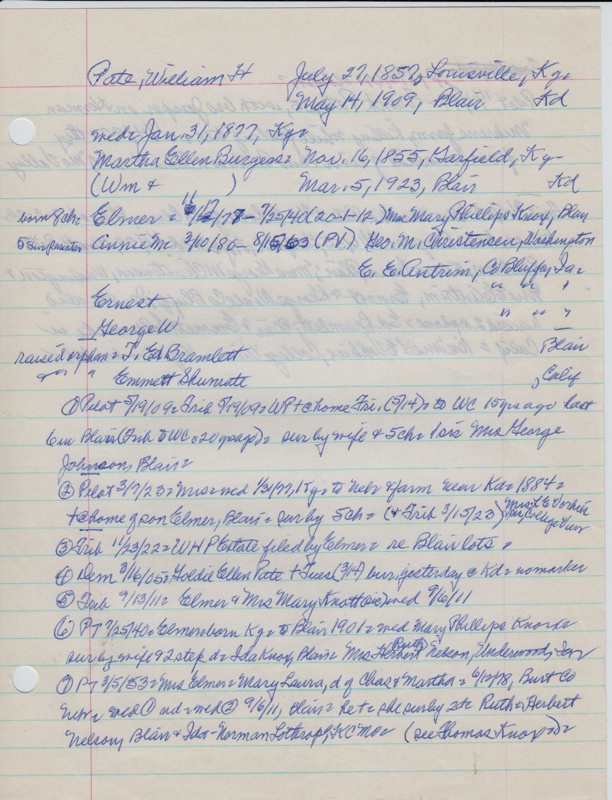 Pate, William H July 27, 1857, Louisville, Ky.
May 14, 1909, Blair Kd
wed= Jan. 31, 1877, Ky=
Martha Ellen Burgess= Nov. 16, 1855, Garfield, Ky-
(Wm & ) Mar. 5, 1923, Blair Kd
born 8 ch= Elmer = 11/12/77- 7/25/40 (20-1-12) Mrs Mary Phillips Knox, Blair
5 survivors Annie M= 3/10/80- 8/15/63 (PV) Geo. M. Christensen, Washington
E. E. Antrim, Co Bluffs, Ia=
Ernest " " "
George W Blair
raised orphan = T. Ed Bramlett
" " Emmett Shumate , Calif
① Pilot 5/19/09= Trib 5/19/09= WP + @ home Fri. (5/14)= to WC 15 yrs ago last
6 in Blair (Trib to WC= 20 y ago)= sur by wife & 5 ch= 1 sis Mrs George
Johnson, Blair=
② Pilot 3/7/23= Mrs= wed 1/31/77, Ky= to Nebr & farm near Kd= 1884=
+ @ home of son Elmer, Blair= sur by 5 ch= (& Trib 3/15/23) Mrs L E College View
③ Trib 11/23/22= WHP Estate filed by Elmer= re Blair lots=
④ Dem 3/16/05= Goldie Ellen Pate + Tues (3/14) bur yesterday @ Kd= no marker
⑤ Trib 9/13/11= Elmer & Mrs Mary Knott (sic) wed 9/6/11
⑥ PT 7/25/40= Elmer= born Ky= to Blair 1901= wed Mary Phillips Knox=
sur by wife & 2 step d= Ida Knox, Blair= Mrs Herbert Ruth Nelson, Underwood, Ia=
⑦ PT 3/5/53= Mrs Elmer= Mary Laura, d of Chas & Martha= 6/12/78, Burt Co
Nebr= wed ① nd= wed ② 9/6/11, Blair= he += she sur by 2 = Ruth= Herbert
Nelson, Blair & Ida= Norman Lothrop, KC Mo= (see Thomas Knox)=